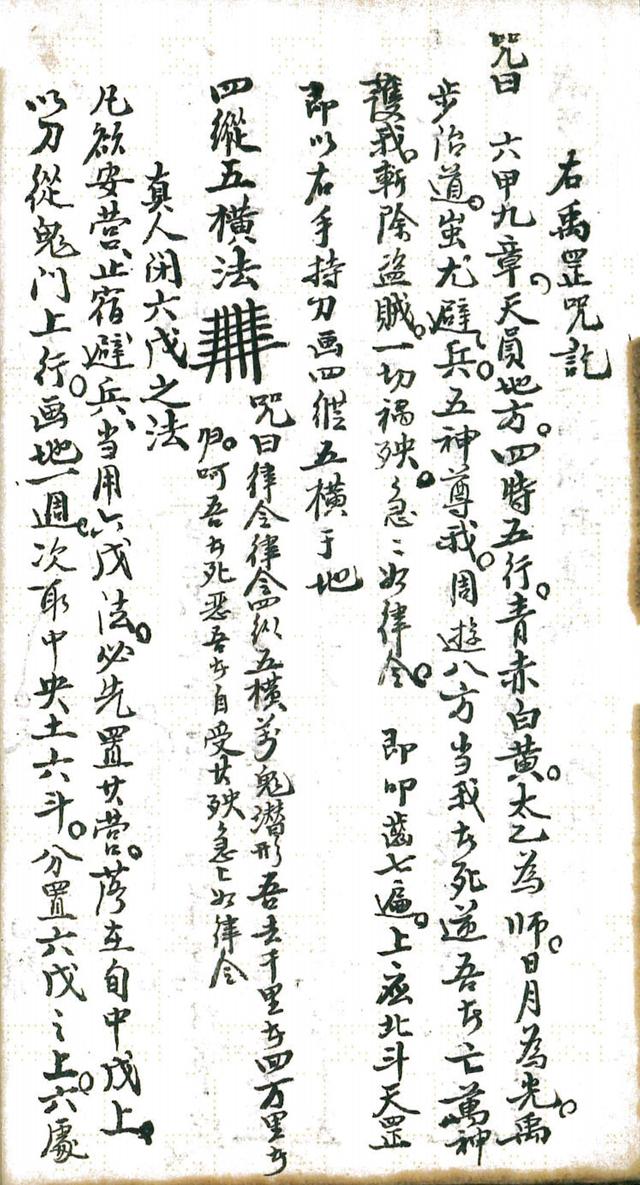 右禹罡咒訖
咒曰 六甲九章。天員地方。四時五行。青赤白黃。太乙為師。日月為光。禹
步治道。蚩尤避兵。五神尊我。周遊八方當我者死逆吾者亡萬神
護我。斬除盜賊。一切禍殃。急々如律令。 即叩齒七遍。上應北斗天罡
即以右手持刀画四縱五橫于地
四縱五橫法
咒曰律令律令四縱五橫萬鬼潛形吾去千里者四万里者
归。呵吾者死惡吾者自受其殃急々如律令
真人閉六戊之法
凡欲安营、止宿避兵、当用六戊法。必先置其营。落在旬中戊上。
以刀從鬼门上行。画地一週。次取中央土六斗。分置六戊之上。六處